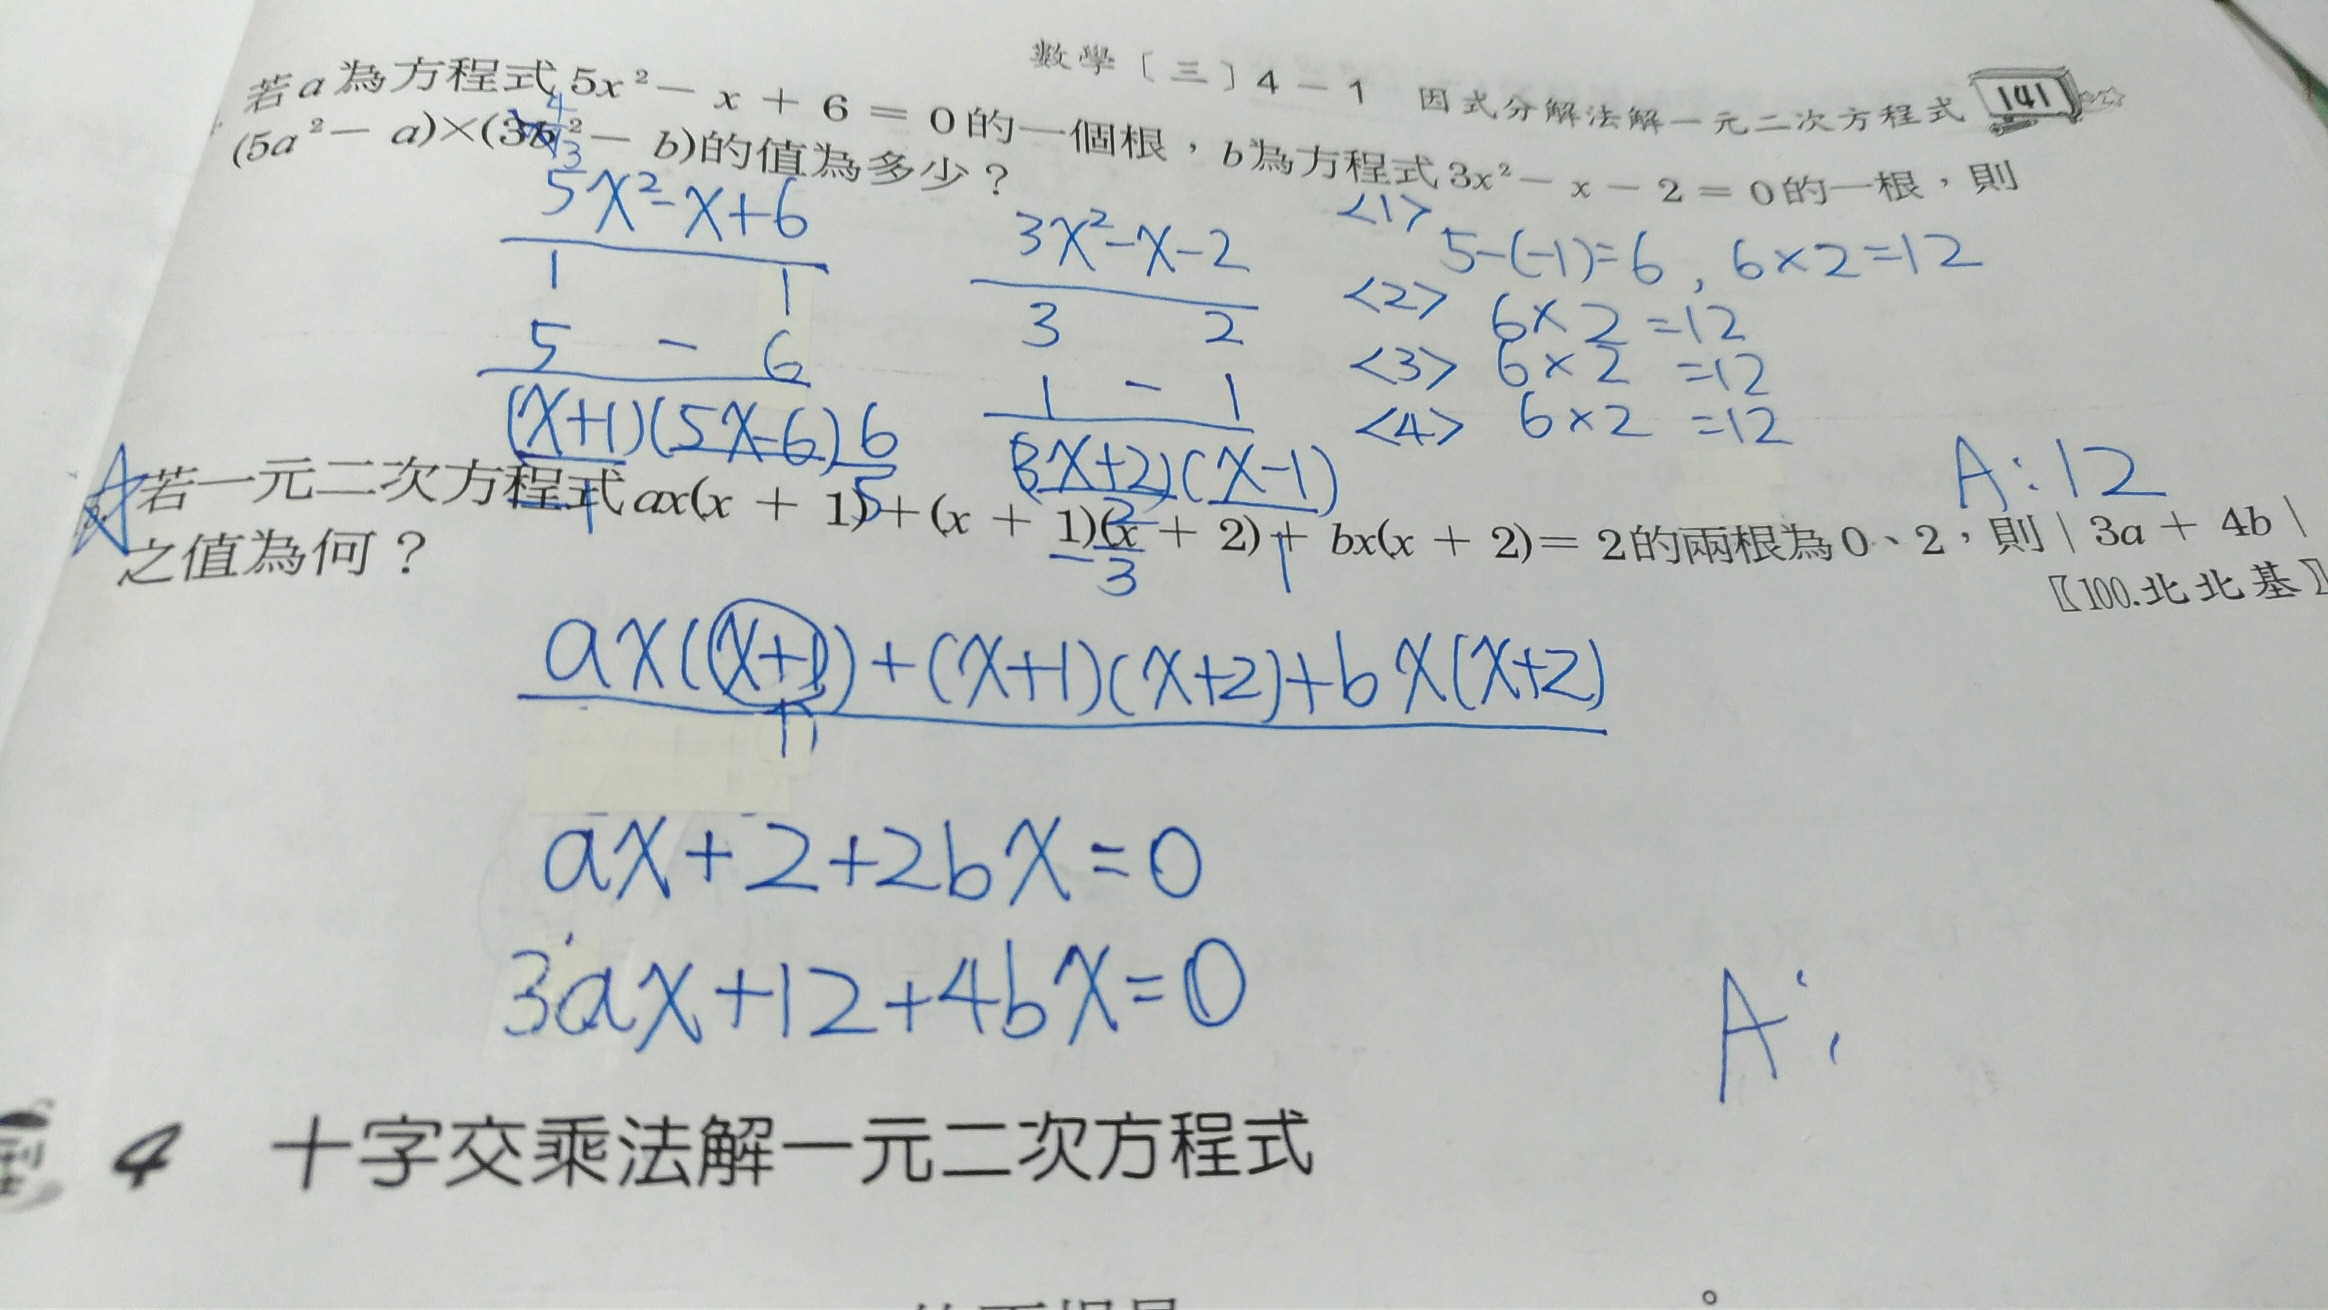 數學〔三〕4-1 因式分解法解一元二次方程式 141
若a為方程式5x²-x+6=0的一個根，b為方程式3x²-x-2=0的一根，則
(5a²-a)×(3b²-b)的值為多少？
5x²-x+6
1 1
5 - 6
(x+1)(5x-6) 6
5
3x²-x-2
3 2
1 - 1
(3x+2)(x-1)
- 2
3
1
<1> 5-(-1)=6, 6×2=12
<2> 6×2=12
<3> 6×2=12
<4> 6×2=12
A:12
若一元二次方程式ax(x+1)+(x+1)(x+2)+bx(x+2)=2的兩根為0、2，則|3a+4b|
之值為何？
〖100.北北基〗
ax(x+1)+(x+1)(x+2)+bx(x+2)
ax+2+2bx=0
3ax+12+4bx=0
A:
4 十字交乘法解一元二次方程式